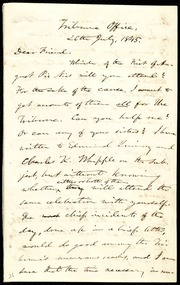 Tribune Office,
26th July, 1845.
Dear Friend,
Which of the First of Aug-
ust Pic Nics will you attend?
For the sake of the cause, I want to
get accounts of them all for the
Tribune. Can you help me?
Or can any of your sisters? I have
written to Edmund Quincy and
Charles K. Whipple on the sub-
ject, but without knowing
whether either or both of them will attend the
same celebration with yourself.
The chief incidents of the
day, done up in a brief letter,
would do good among the Tri-
bune's numerous readers, and I am
sure that the time necessary in